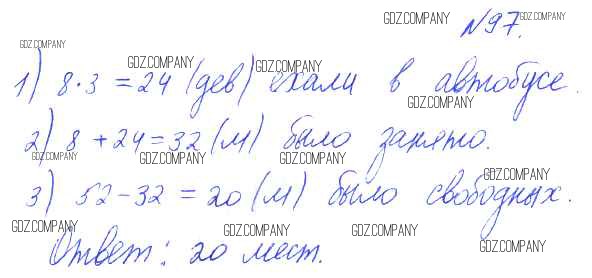 GDZ.COMPANY GDZ.COMPANY
N97.
GDZ.COMPANY
GDZ.COMPANY GDZ.COMPANY
1) 8·3 = 24 (дев) ехали в автобусе.
GDZ.COMPANY
2) 8 + 24 = 32 (м) было занято.
GDZ.COMPANY GDZ.COMPANY GDZ.COMPANY
GDZ.COMPANY
3) 52 - 32 = 20 (м) было свободных.
GDZ.COMPANY GDZ.COMPANY GDZ.COMPANY
Ответ: 20 мест.
GDZ.COMPANY GDZ.COMPANY